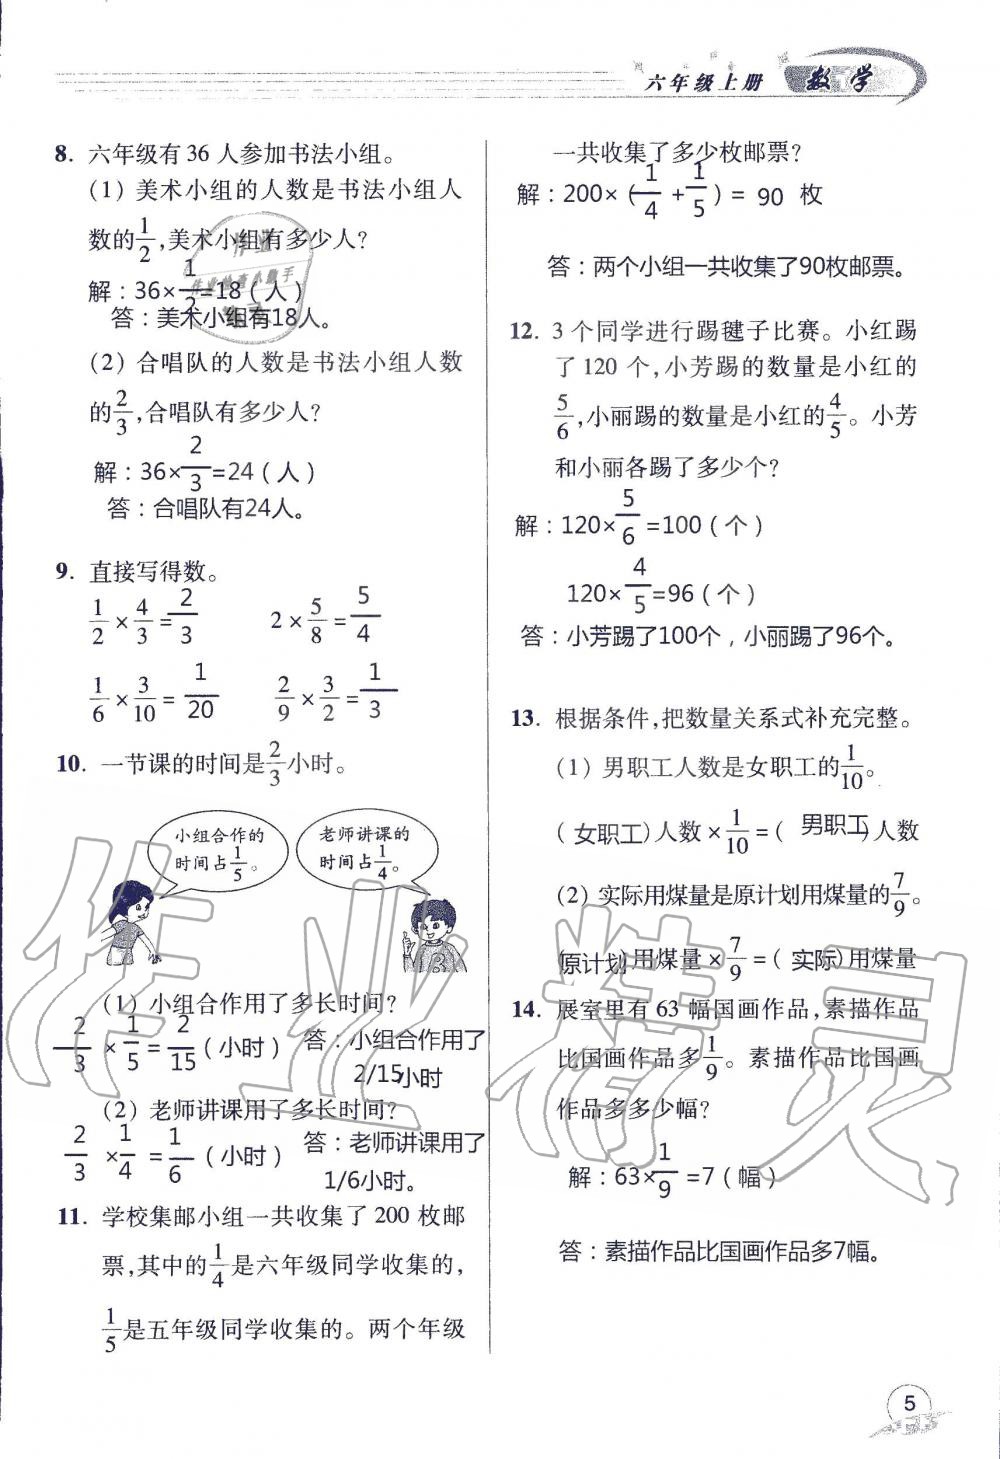 六年级上册 数学
8. 六年级有 36 人参加书法小组。
(1) 美术小组的人数是书法小组人
数的1/2,美术小组有多少人?
解：36×1/2=18（人）
答：美术小组有18人。
(2) 合唱队的人数是书法小组人数
的2/3,合唱队有多少人?
解：36×2/3=24（人）
答：合唱队有24人。
9. 直接写得数。
1/2 × 4/3 = 2/3 2 × 5/8 = 5/4
1/6 × 3/10 = 1/20 2/9 × 3/2 = 1/3
10. 一节课的时间是2/3小时。
小组合作的
时间占1/5。
老师讲课的
时间占1/4。
(1) 小组合作用了多长时间?
2/3 × 1/5 = 2/15（小时） 答：小组合作用了
2/15小时
(2) 老师讲课用了多长时间?
2/3 × 1/4 = 1/6（小时） 答：老师讲课用了
1/6小时。
11. 学校集邮小组一共收集了 200 枚邮
票,其中的1/4是六年级同学收集的,
1/5是五年级同学收集的。两个年级
一共收集了多少枚邮票?
解：200×（1/4+1/5）= 90 枚
答：两个小组一共收集了90枚邮票。
12. 3 个同学进行踢毽子比赛。小红踢
了 120 个,小芳踢的数量是小红的
5/6,小丽踢的数量是小红的4/5。小芳
和小丽各踢了多少个?
解：120×5/6=100（个）
120×4/5=96（个）
答：小芳踢了100个，小丽踢了96个。
13. 根据条件,把数量关系式补充完整。
(1) 男职工人数是女职工的1/10。
(女职工)人数×1/10=(男职工)人数
(2) 实际用煤量是原计划用煤量的7/9。
原计划用煤量×7/9=(实际)用煤量
14. 展室里有 63 幅国画作品,素描作品
比国画作品多1/9。素描作品比国画
作品多多少幅?
解：63×1/9=7（幅）
答：素描作品比国画作品多7幅。
5
作业精灵
作业
作业检查小助手